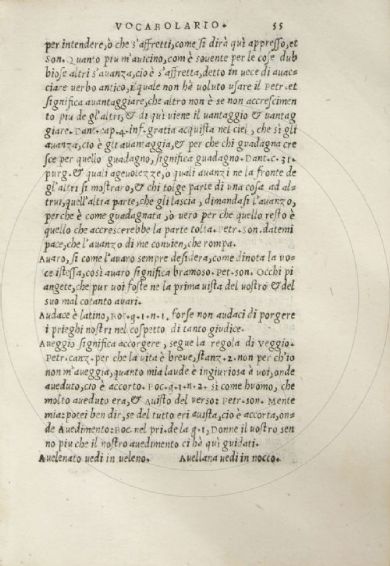 VOCABOLARIO. 55
per intendere, ò che s'affretti, come si dirà quì appresso, et
Son. Quanto piu m'auicino, com'è souente per le cose dub
biose altri s'auanza, cio è s'affretta, detto in uece di auac=
ciare uerbo antico, ilquale non hà uoluto usare il Petr. et
significa auantaggiare, che altro non è se non accrescimen
to piu de gl'altri, & di quì viene il uantaggio & uantag
giare. Dant. cap. 4. inf. gratia acquista nel ciel, che sì gli
auanza, cio è gli auantaggia, & per che chi guadagna cre
sce per quello guadagno, significa guadagno. Dant. c. 31.
purg. & quali ageuolezze, o quali auanzi ne la fronte de
gl'altri si mostraro, & chi tolge parte di una cosa ad al=
trui, quell'altra parte, che gli lascia, dimandasi l'auanzo,
perche è come guadagnata, ò uero per che quello resto è
quello che accrescerebbe la parte tolta. Petr. son. datemi
pace, che l'auanzo di me conuien, che rompa.
Auaro, si come l'auaro sempre desidera, come dinota la uo=
ce istessa, così auaro significa bramoso. Pet. son. Occhi pi
angete, che pur uoi foste ne la prima uista del uostro & del
suo mal cotanto auari.
Audace è latino, Boc. q. 1. n. 1. forse non audaci di porgere
i prieghi nostri nel cospetto di tanto giudice.
Aueggio significa accorgere, segue la regola di veggio.
Petr. canz. per che la uità è breue, stanz. 2. non per ch'io
non m'aueggia, quanto mia laude è ingiuriosa à uoi, onde
aueduto, cio è accorto. Boc. q. 1. n. 2. sì come huomo, che
molto aueduto era, & Auisto del uerso: Petr. son. Mente
mia: potei ben dir, se del tutto eri auista, cio è accorta, on=
de Auedimento: Boc. nel pri. de la q. 1, Donne il uostro sen
no piu che il nostro auedimento ci hà quì guidati.
Auelenato uedi in ueleno. Auellana uedi in nocco.